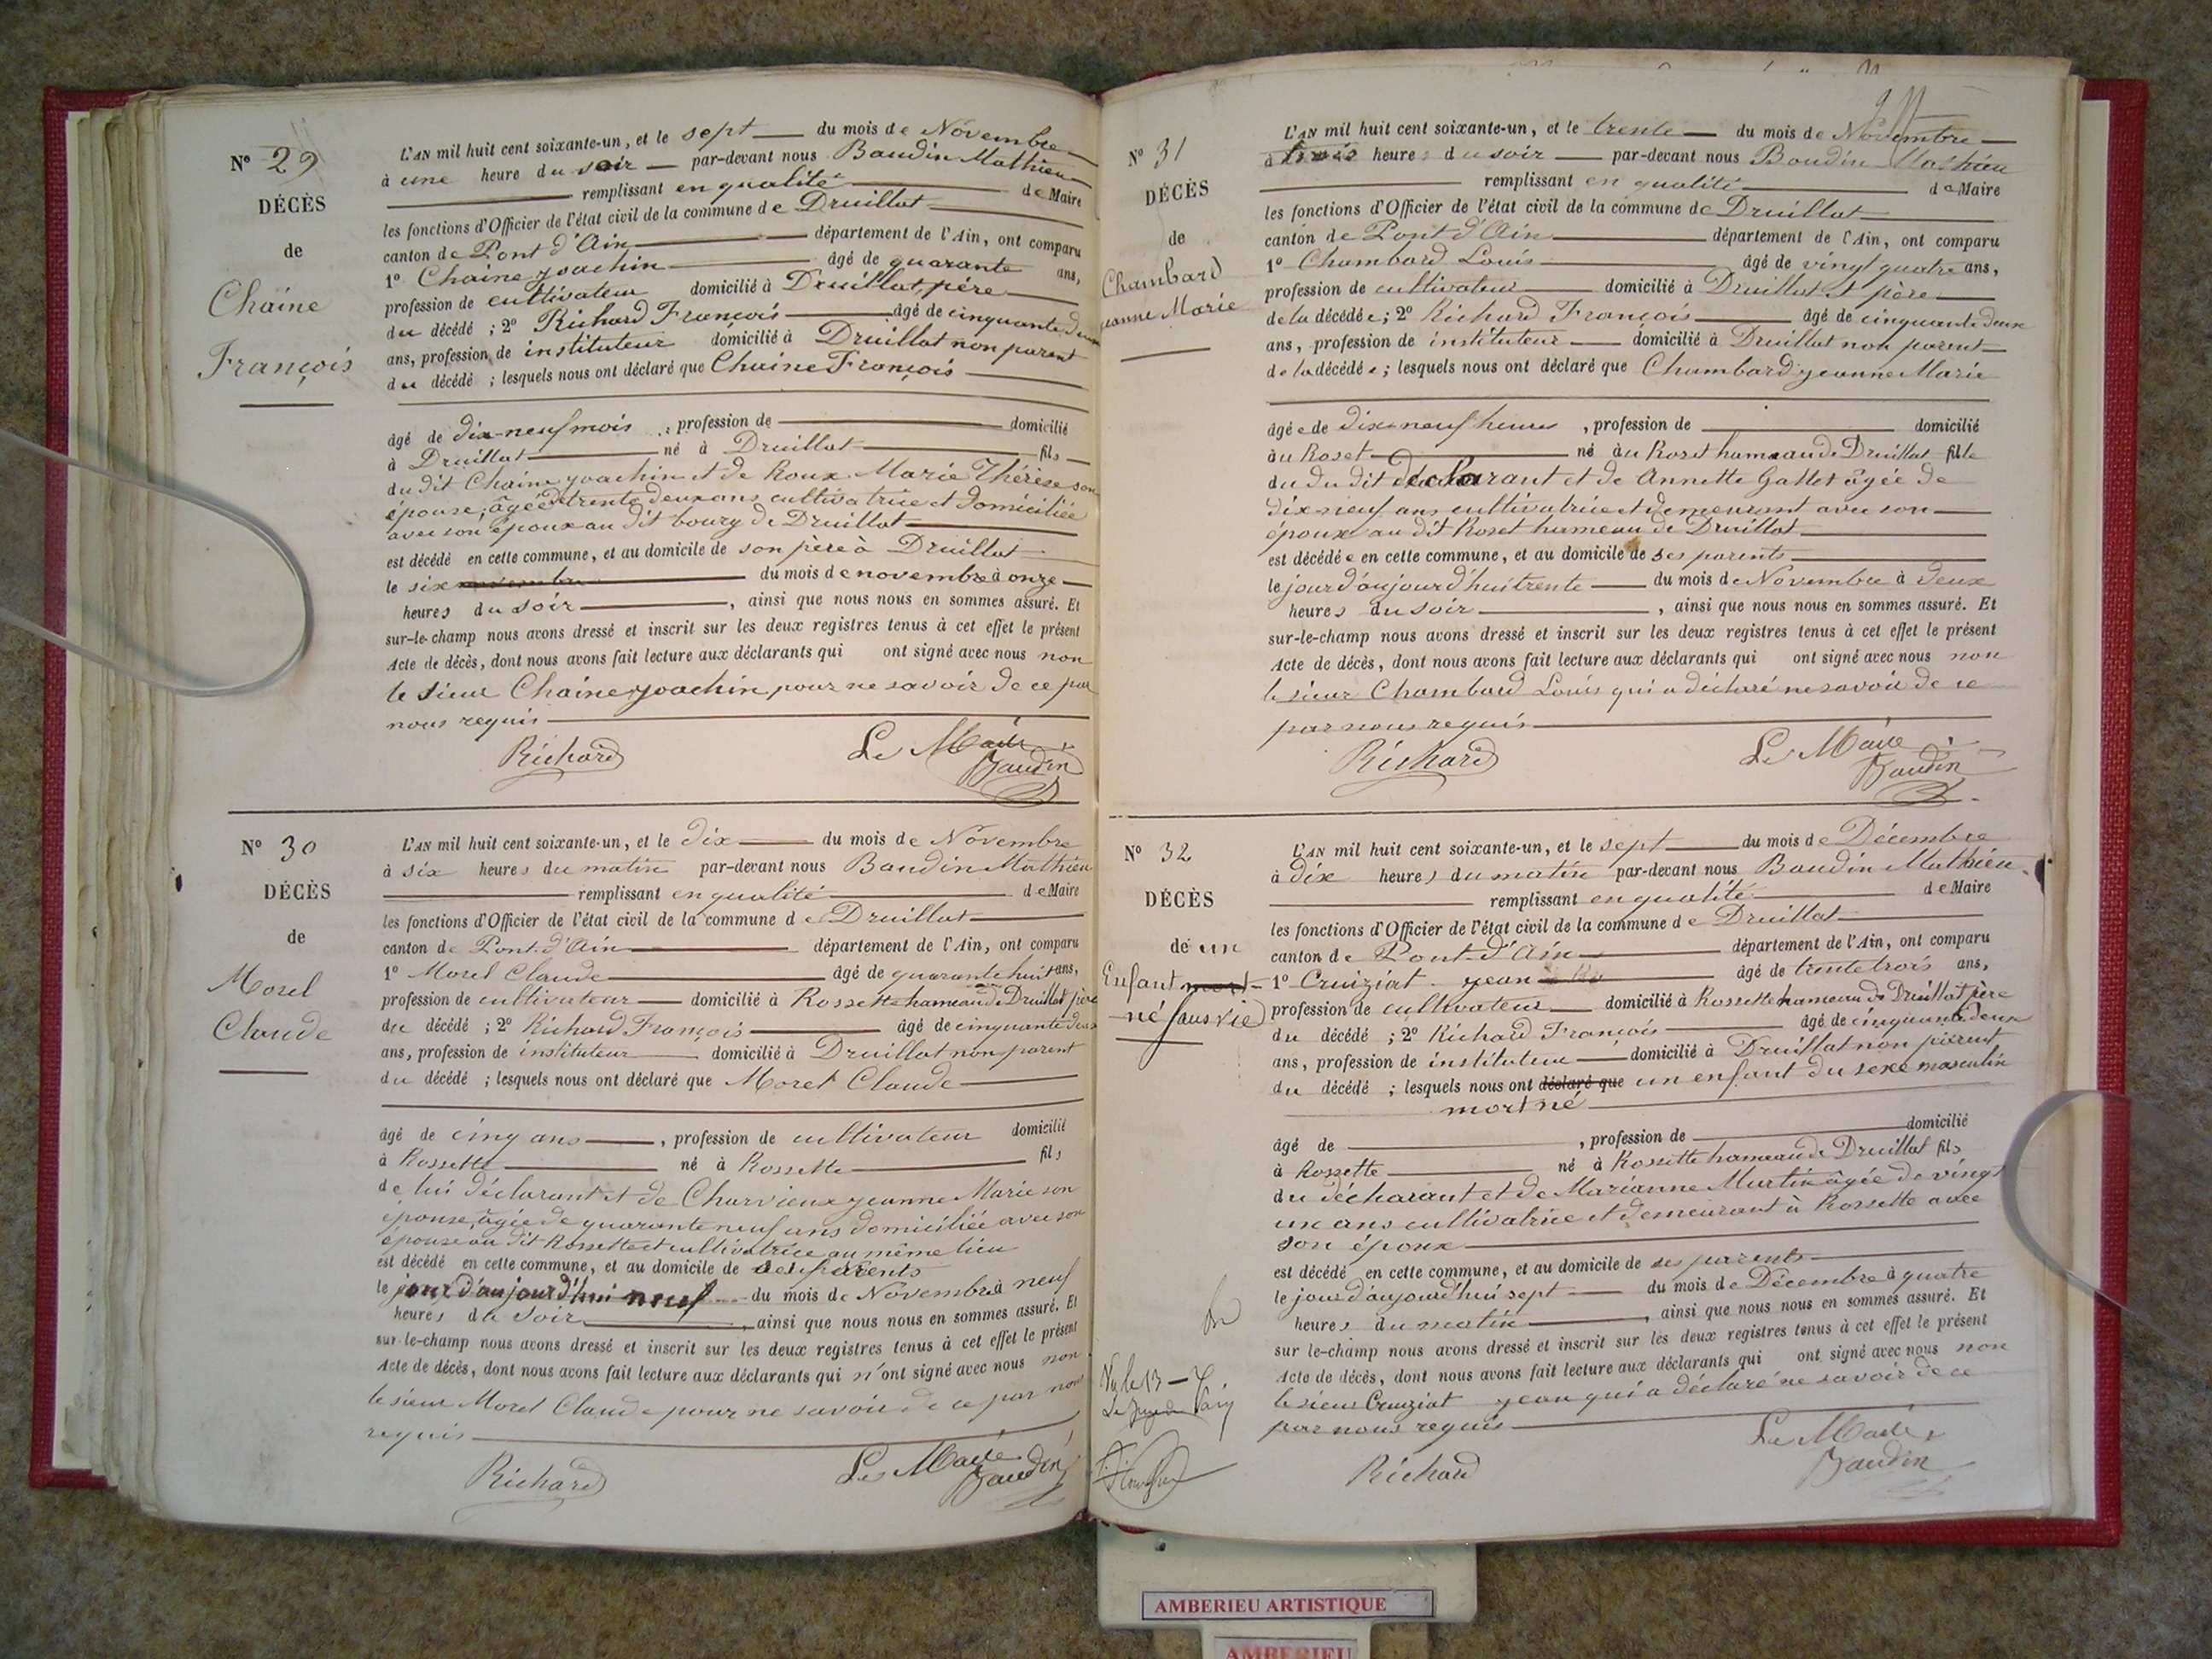 N° 29
DÉCÈS
de
Chaine
François
L'AN mil huit cent soixante-un, et le sept du mois de Novembre
à une heure du soir par-devant nous Baudin Mathieu
remplissant en qualité de Maire
les fonctions d'Officier de l'état civil de la commune de Druillat
canton de Pont d'Ain département de l'Ain, ont comparu
1° Chaine joachin âgé de quarante ans,
profession de cultivateur domicilié à Druillat, père
du décédé ; 2° Richard François âgé de cinquante deux
ans, profession de instituteur domicilié à Druillat non parent
du décédé ; lesquels nous ont déclaré que Chaine François
âgé de dix-neuf mois , profession de domicilié
à Druillat né à Druillat fils
du dit Chaine joachin et de Roux Marie Thérèse son
épouse, âgée de trente deux ans cultivatrice et domiciliée
avec son époux au dit bourg de Druillat
est décédé en cette commune, et au domicile de son père à Druillat
le six du mois de novembre à onze
heures du soir , ainsi que nous nous en sommes assuré. Et
sur-le-champ nous avons dressé et inscrit sur les deux registres tenus à cet effet le présent
Acte de décès, dont nous avons fait lecture aux déclarants qui ont signé avec nous non
le sieur Chaine joachin pour ne savoir de ce par
nous requis
Richard Le Maire
Baudin
N° 30
DÉCÈS
de
Morel
Claude
L'AN mil huit cent soixante-un, et le dix du mois de Novembre
à six heures du matin par-devant nous Baudin Mathieu
remplissant en qualité de Maire
les fonctions d'Officier de l'état civil de la commune de Druillat
canton de Pont d'Ain département de l'Ain, ont comparu
1° Morel Claude âgé de quarante huit ans,
profession de cultivateur domicilié à Rossette hameau de Druillat père
du décédé ; 2° Richard François âgé de cinquante deux
ans, profession de instituteur domicilié à Druillat non parent
du décédé ; lesquels nous ont déclaré que Morel Claude
âgé de cinq ans , profession de cultivateur domicilié
à Rossette né à Rossette fils
de lui déclarant et de Charvieux jeanne Marie son
épouse, âgée de quarante neuf ans domiciliée avec son
épouse au dit Rossette et cultivatrice au même lieu
est décédé en cette commune, et au domicile de ses parents
le jour d'aujourd'hui neuf du mois de Novembre à neuf
heures du soir , ainsi que nous nous en sommes assuré. Et
sur-le-champ nous avons dressé et inscrit sur les deux registres tenus à cet effet le présent
Acte de décès, dont nous avons fait lecture aux déclarants qui n'ont signé avec nous non
le sieur Morel Claude pour ne savoir de ce par nous
requis
Richard Le Maire
Baudin
N° 31
DÉCÈS
de
Chambard
jeanne Marie
L'AN mil huit cent soixante-un, et le trente du mois de Novembre
à trois heures du soir par-devant nous Baudin Mathieu
remplissant en qualité de Maire
les fonctions d'Officier de l'état civil de la commune de Druillat
canton de Pont d'Ain département de l'Ain, ont comparu
1° Chambard Louis âgé de vingt quatre ans,
profession de cultivateur domicilié à Druillat et père
de la décédée ; 2° Richard François âgé de cinquante deux
ans, profession de instituteur domicilié à Druillat non parent
de la décédée ; lesquels nous ont déclaré que Chambard jeanne Marie
âgée de dix-neuf heures , profession de domicilié
au Roset né au Roset hameau de Druillat fille
du du dit déclarant et de Annette Gallet âgée de
dix neuf ans cultivatrice et demeurant avec son
époux au dit Roset hameau de Druillat
est décédée en cette commune, et au domicile de ses parents
le jour d'aujourd'hui trente du mois de Novembre à deux
heures du soir , ainsi que nous nous en sommes assuré. Et
sur-le-champ nous avons dressé et inscrit sur les deux registres tenus à cet effet le présent
Acte de décès, dont nous avons fait lecture aux déclarants qui ont signé avec nous non
le sieur Chambard Louis qui a déclaré ne savoir de ce
par nous requis
Richard Le Maire
Baudin
N° 32
DÉCÈS
de un
Enfant mort
né (sans vie)
L'AN mil huit cent soixante-un, et le sept du mois de Décembre
à dix heures du matin par-devant nous Baudin Mathieu
remplissant en qualité de Maire
les fonctions d'Officier de l'état civil de la commune de Druillat
canton de Pont d'Ain département de l'Ain, ont comparu
1° Cruiziat jean âgé de trente trois ans,
profession de cultivateur domicilié à Rossette hameau de Druillat père
du décédé ; 2° Richard François âgé de cinquante deux
ans, profession de instituteur domicilié à Druillat non parent
du décédé ; lesquels nous ont déclaré que un enfant du sexe masculin
mort né
âgé de , profession de domicilié
à Rossette né à Rossette hameau de Druillat fils
du décharant et de Marianne Martin âgée de vingt
un ans cultivatrice et demeurant à Rossette avec
son époux
est décédé en cette commune, et au domicile de ses parents
le jour d'aujourd'hui sept du mois de Décembre à quatre
heures du matin , ainsi que nous nous en sommes assuré. Et
sur-le-champ nous avons dressé et inscrit sur les deux registres tenus à cet effet le présent
Acte de décès, dont nous avons fait lecture aux déclarants qui ont signé avec nous non
le sieur Cruiziat jean qui a déclaré ne savoir de ce
par nous requis
Richard Le Maire
Baudin
AMBERIEU ARTISTIQUE
AMBERIEU